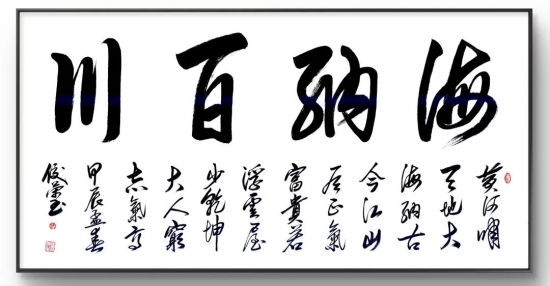 海納百川
黄河嘯
天地大
海納古
今江山
正氣
富貴若
浮雲屋
少乾坤
大人窮
志氣高
甲辰孟春